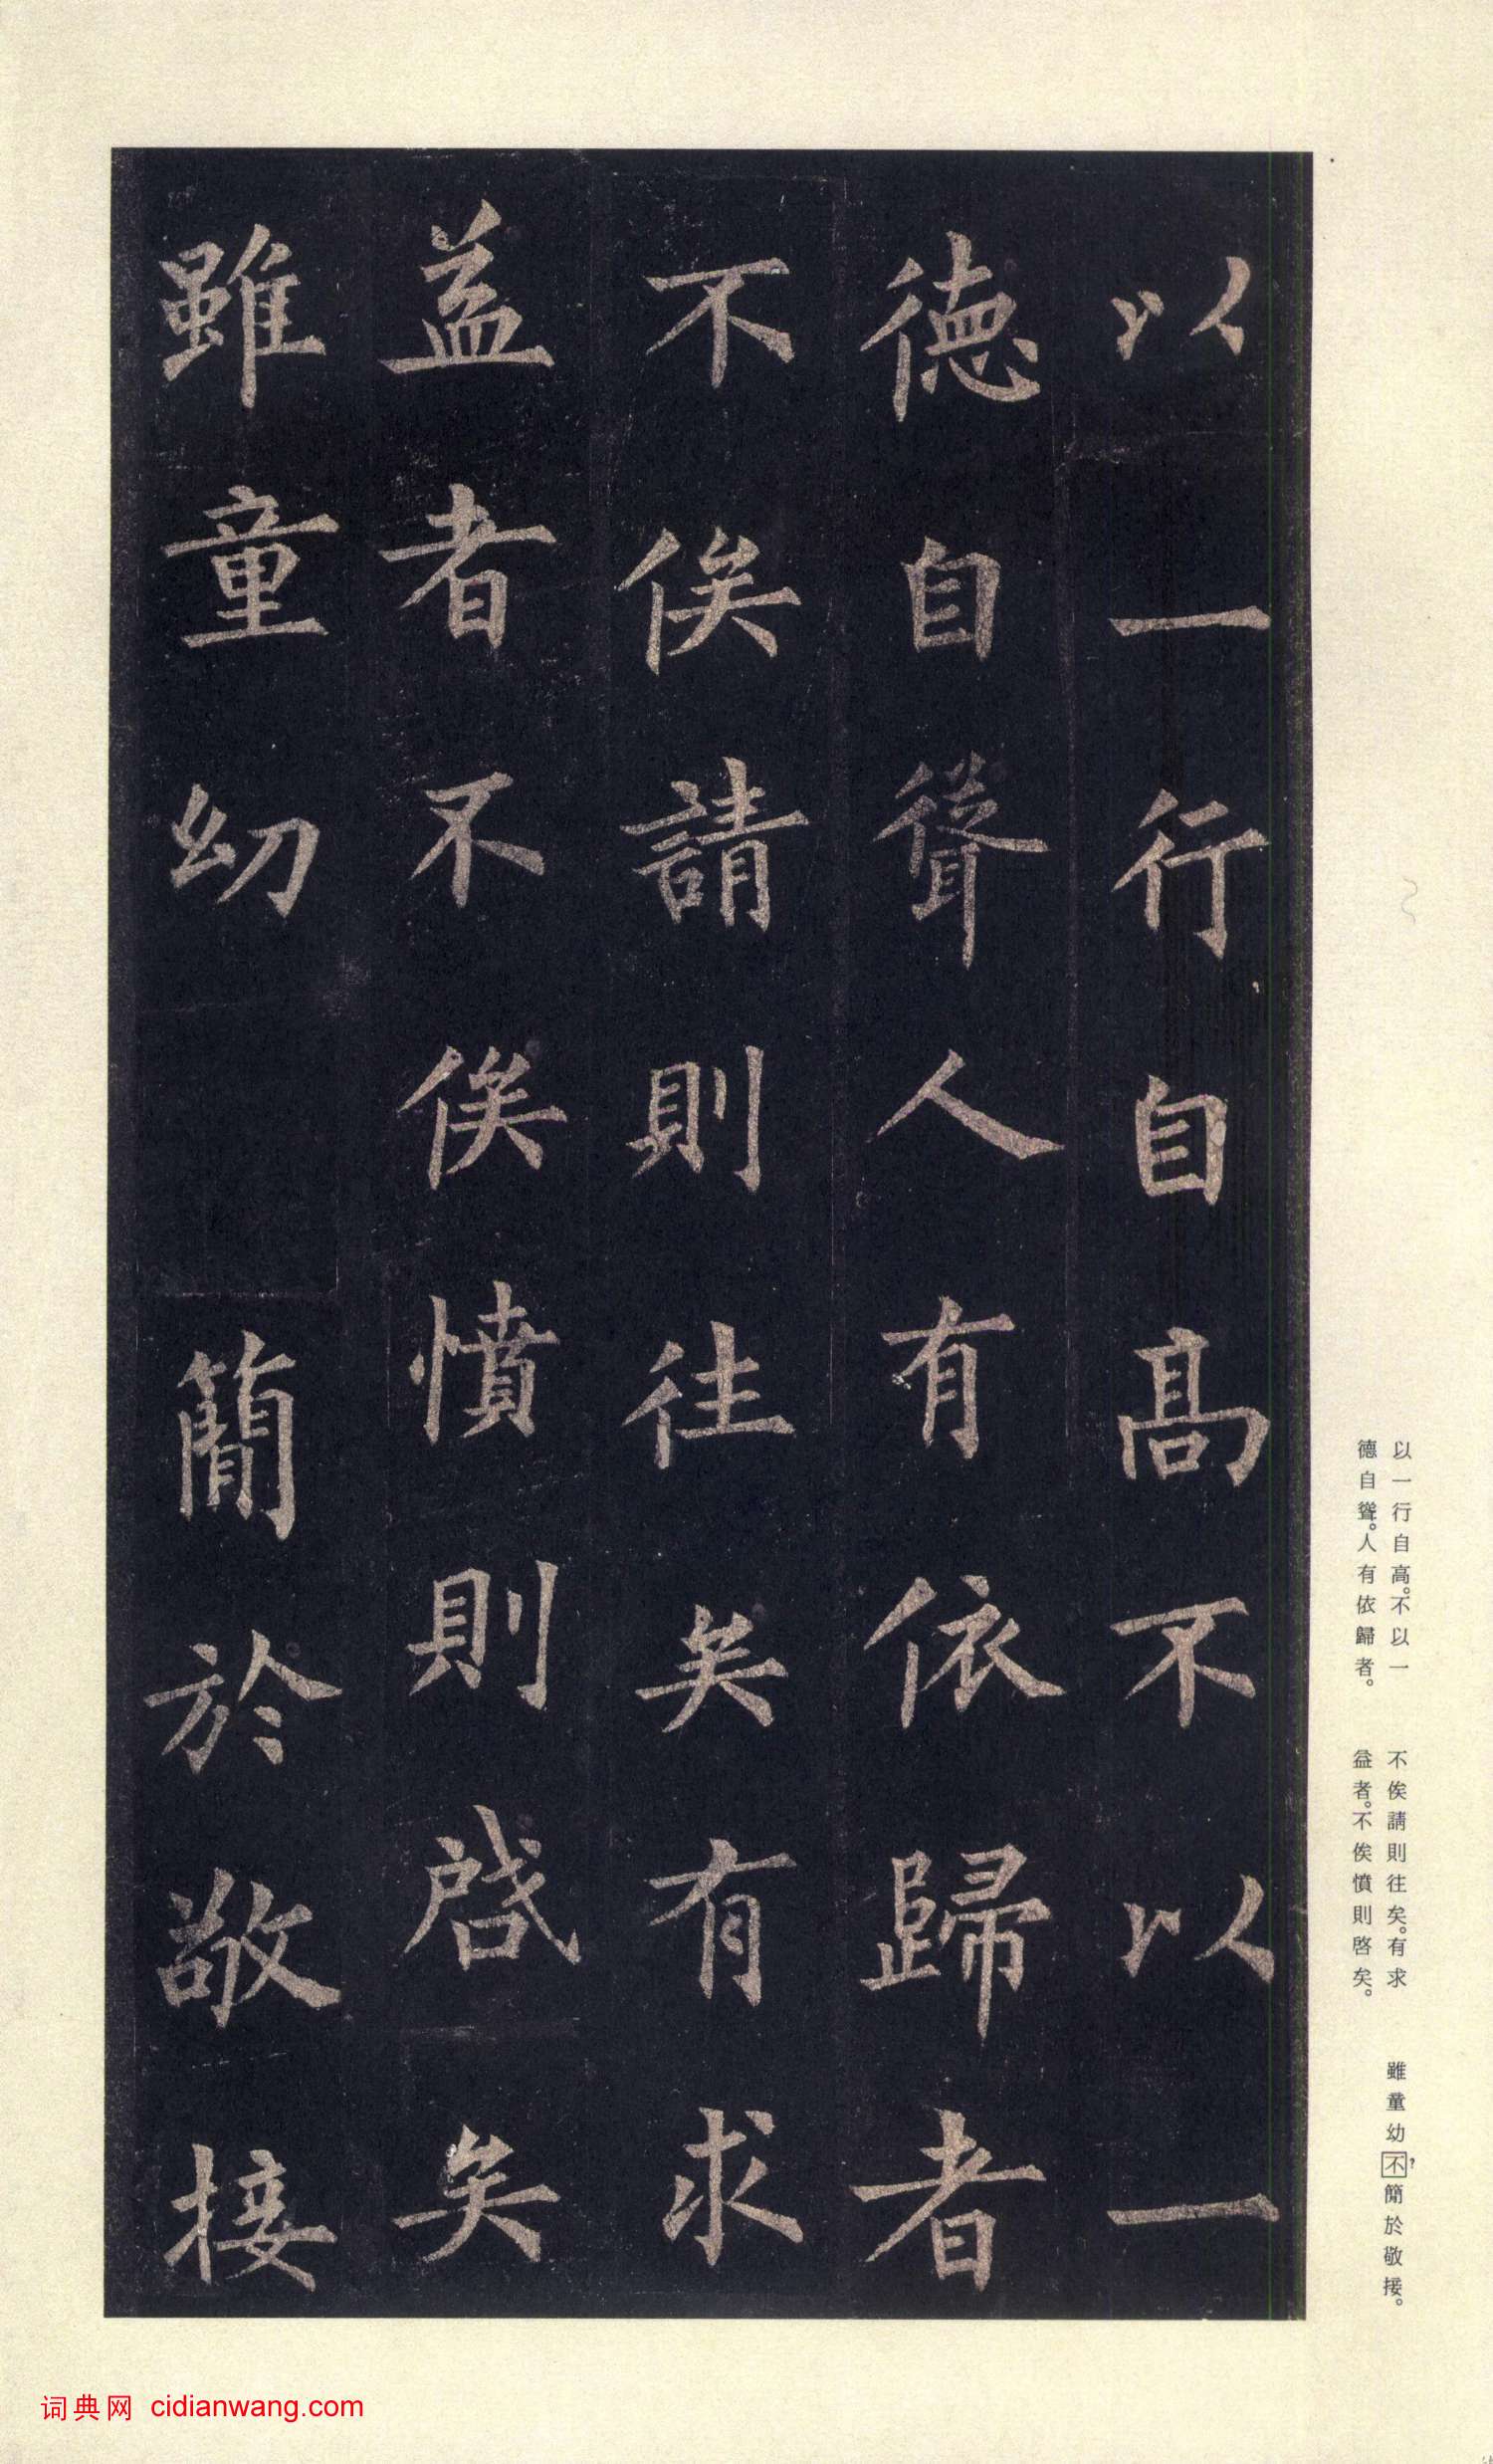 以一行自高不以一
德自聳人有依歸者
不俟請則往矣有求
益者不俟憤則啓矣
雖童幼 簡於敬接
以一行自高。不以一
德自聳。人有依歸者。
不俟請則往矣。有求
益者。不俟憤則啓矣。
雖童幼不?簡於敬接。
词典网 cidianwang.com